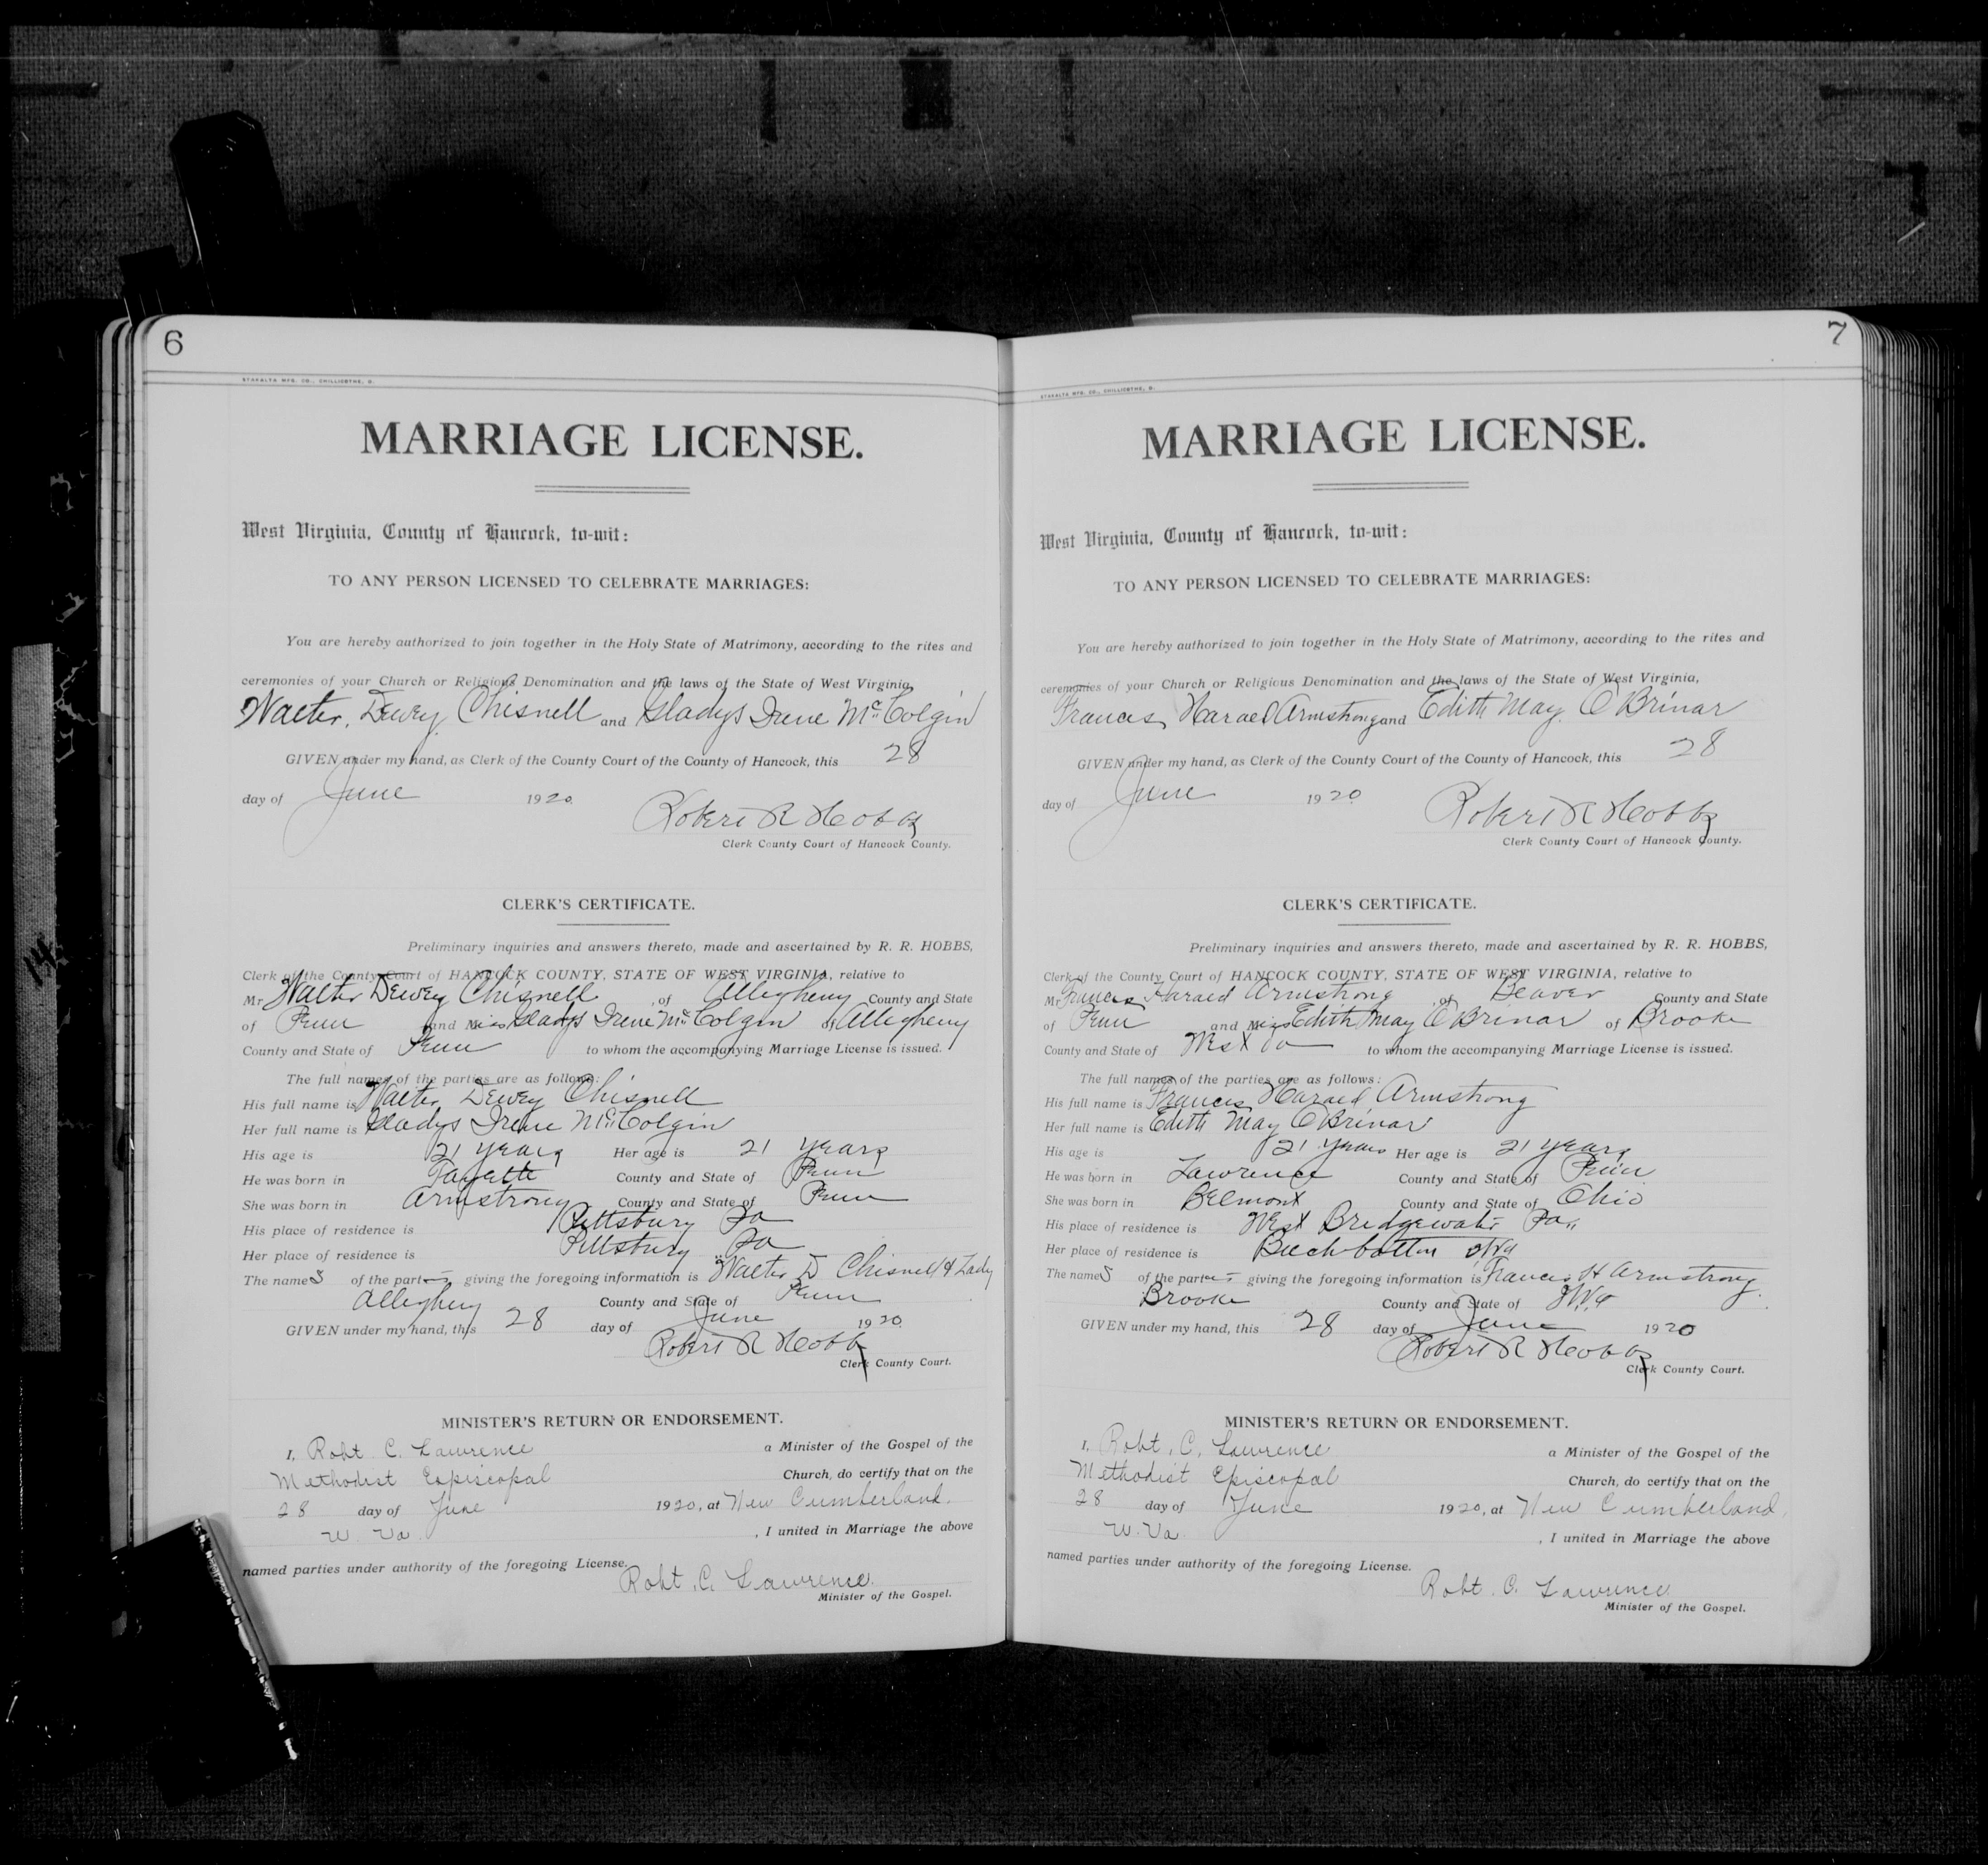 6
STAKALTA MFG. CO., CHILLICOTHE, O.
MARRIAGE LICENSE.
West Virginia, County of Hancock, to-wit:
TO ANY PERSON LICENSED TO CELEBRATE MARRIAGES:
You are hereby authorized to join together in the Holy State of Matrimony, according to the rites and
ceremonies of your Church or Religious Denomination and the laws of the State of West Virginia,
Walter Dewey Chisnell and Gladys Irene McColgin
GIVEN under my hand, as Clerk of the County Court of the County of Hancock, this 28
day of June 1920.
Robert R Hobbs
Clerk County Court of Hancock County.
CLERK'S CERTIFICATE.
Preliminary inquiries and answers thereto, made and ascertained by R. R. HOBBS,
Clerk of the County Court of HANCOCK COUNTY, STATE OF WEST VIRGINIA, relative to
Mr Walter Dewey Chisnell, of Allegheny County and State
of Penn and Miss Gladys Irene McColgin of Allegheny
County and State of Penn to whom the accompanying Marriage License is issued.
The full names of the parties are as follows:
His full name is Walter Dewey Chisnell
Her full name is Gladys Irene McColgin
His age is 21 years Her age is 21 years
He was born in Fayette County and State of Penn
She was born in Armstrong County and State of Penn
His place of residence is Pittsburg Pa
Her place of residence is Pittsburg Pa
The names of the parties giving the foregoing information is Walter D Chisnell & Lady
Allegheny County and State of Penn
GIVEN under my hand, this 28 day of June 1920
Robert R Hobbs
Clerk County Court.
MINISTER'S RETURN OR ENDORSEMENT.
I, Robt C. Lawrence a Minister of the Gospel of the
Methodist Episcopal Church, do certify that on the
28 day of June 1920, at New Cumberland.
W. Va. , I united in Marriage the above
named parties under authority of the foregoing License.
Robt. C. Lawrence.
Minister of the Gospel.
7
STAKALTA MFG. CO., CHILLICOTHE, O.
MARRIAGE LICENSE.
West Virginia, County of Hancock, to-wit:
TO ANY PERSON LICENSED TO CELEBRATE MARRIAGES:
You are hereby authorized to join together in the Holy State of Matrimony, according to the rites and
ceremonies of your Church or Religious Denomination and the laws of the State of West Virginia,
Frances Harald Armstrong and Edith May O Brinar
GIVEN under my hand, as Clerk of the County Court of the County of Hancock, this 28
day of June 1920
Robert R Hobbs
Clerk County Court of Hancock County.
CLERK'S CERTIFICATE.
Preliminary inquiries and answers thereto, made and ascertained by R. R. HOBBS,
Clerk of the County Court of HANCOCK COUNTY, STATE OF WEST VIRGINIA, relative to
Mr Frances Harald Armstrong, of Beaver County and State
of Penn and Miss Edith May O Brinar of Brooke
County and State of West Va to whom the accompanying Marriage License is issued.
The full names of the parties are as follows:
His full name is Frances Harald Armstrong
Her full name is Edith May O Brinar
His age is 21 years Her age is 21 years
He was born in Lawrence County and State of Penn
She was born in Belmont County and State of Ohio
His place of residence is West Bridgewater Pa
Her place of residence is Beech bottom WVa
The names of the parties giving the foregoing information is Frances H Armstrong
Brooke County and State of WVa
GIVEN under my hand, this 28 day of June 1920
Robert R Hobbs
Clerk County Court.
MINISTER'S RETURN OR ENDORSEMENT.
I, Robt. C. Lawrence a Minister of the Gospel of the
Methodist Episcopal Church, do certify that on the
28 day of June 1920, at New Cumberland,
W. Va. , I united in Marriage the above
named parties under authority of the foregoing License.
Robt. C. Lawrence.
Minister of the Gospel.
14